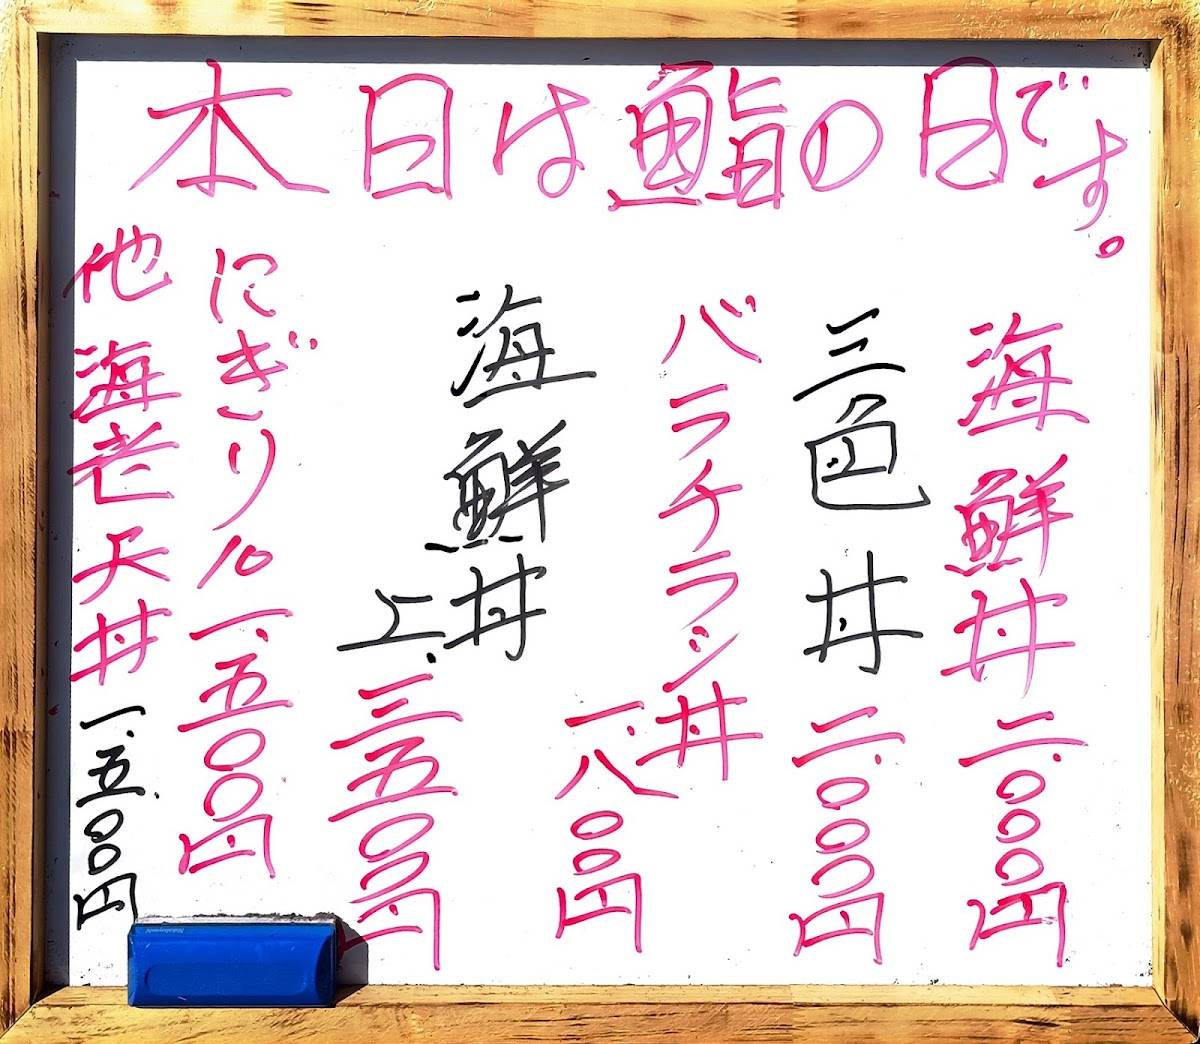 本日は鮨の日です。
海鮮丼 二.〇〇〇円
三色丼 二.〇〇〇円
バラチラシ丼 一.八〇〇円
海鮮丼上 三.五〇〇円
にぎり10 一.五〇〇円
他 海老天丼 一.五〇〇円